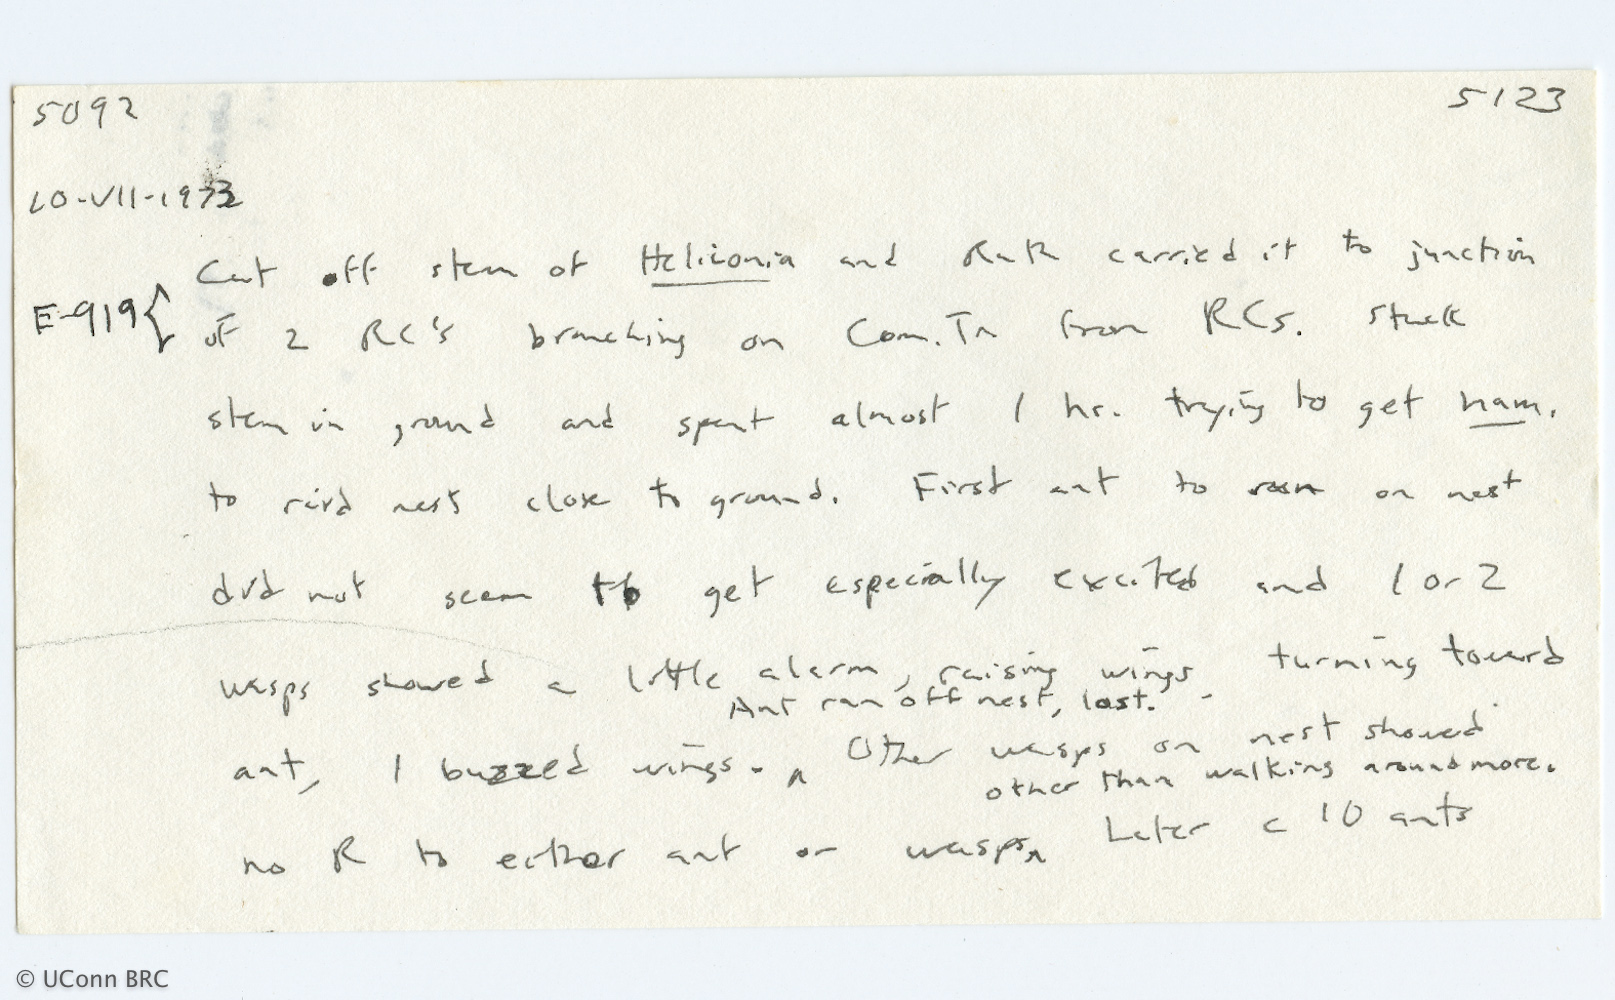 5092 5123
10-VII-1973
Cut off stem of Heliconia and Ruth carried it to junction
E-919 { of 2 RC's branching on Com. Tr from RCs. Stuck
stem in ground and spent almost 1 hr. trying to get ham.
to raid nest close to ground. First ant to run on nest
did not seem to get especially excited and 1 or 2
wasps showed a little alarm, raising wings, turning toward
Ant ran off nest, lost.
ant, 1 buzzed wings. ^ Other wasps on nest showed
other than walking around more.
no R to either ant or wasps^ Later c 10 ants
© UConn BRC